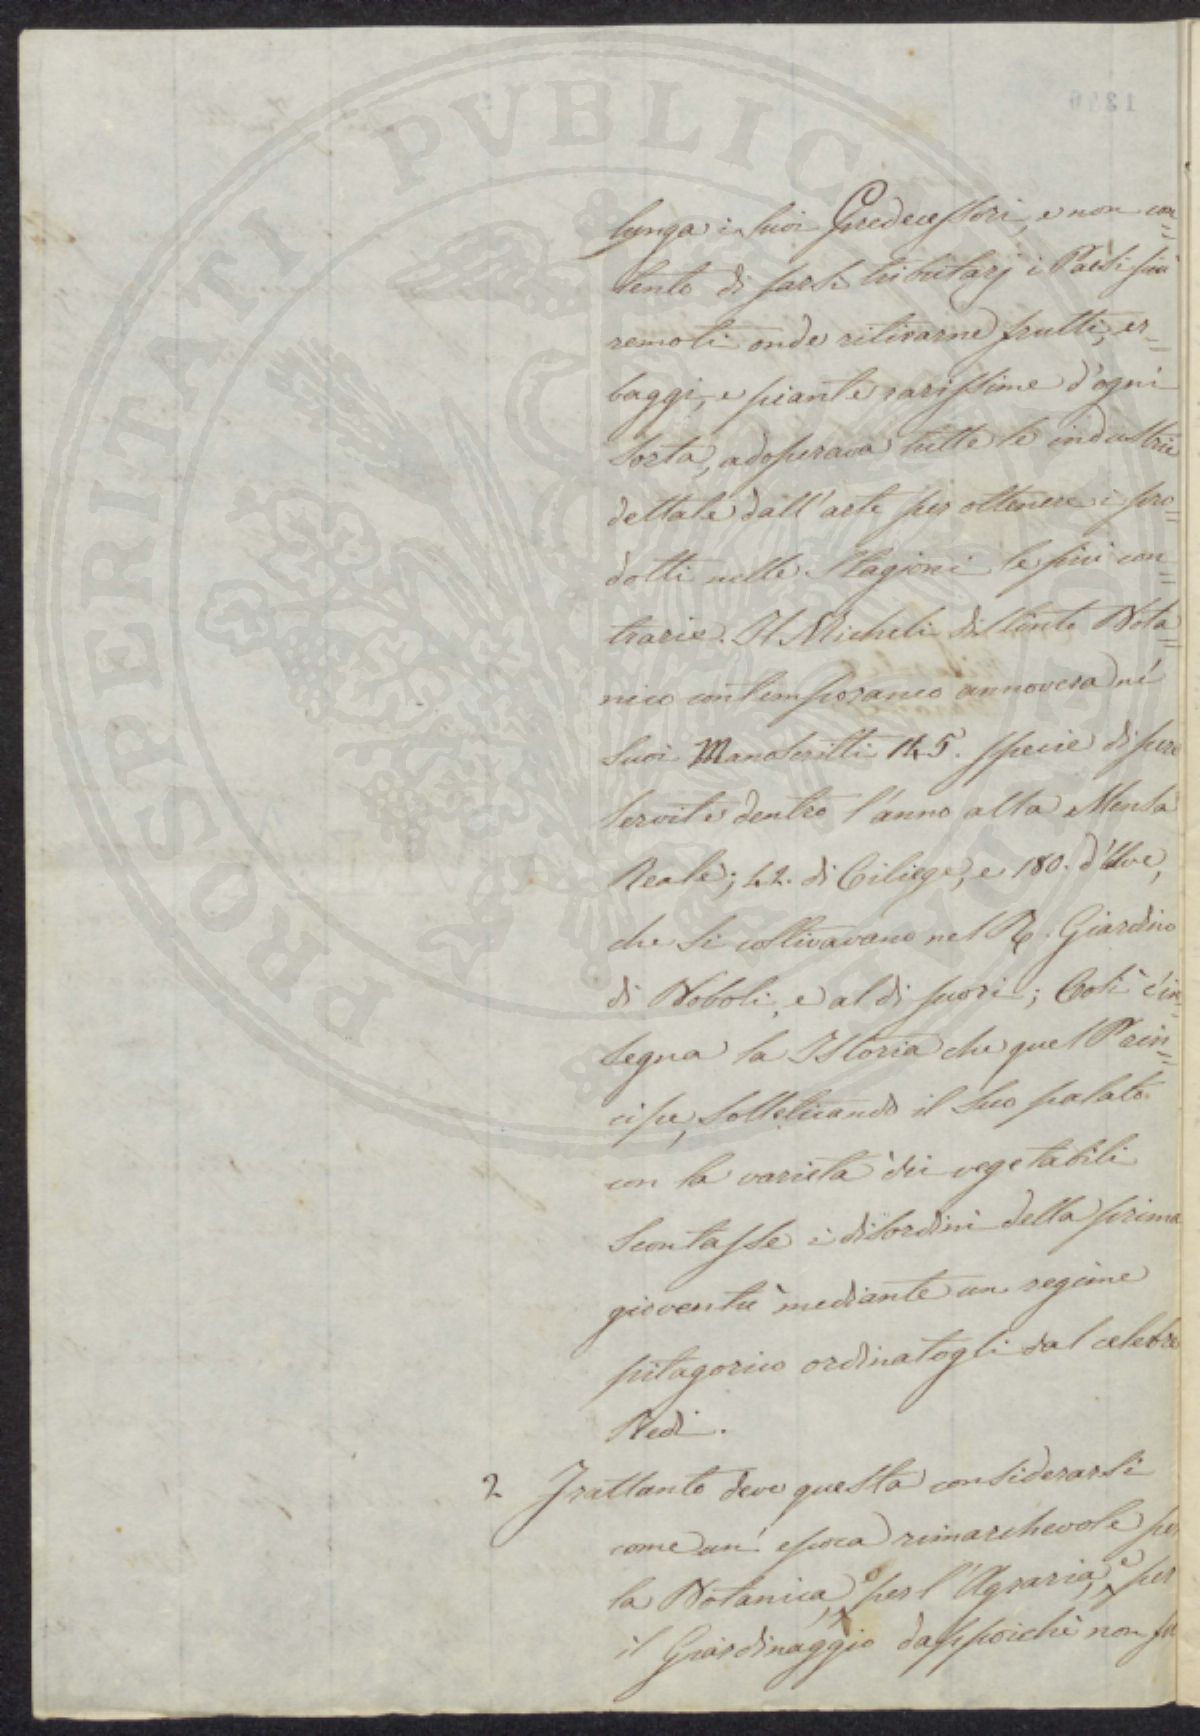 lunga i suoi Predecessori, e non con=
tento di farsi tributarj i Paesi più
remoti onde ritirarne frutti, er=
baggi, e piante rarissime d'ogni
sorta, adoperava tutte le industrie
dettate dall'arte per ottenere i pro=
dotti nelle Stagioni le più con=
trarie. Il Micheli distinto Bota=
nico contemporaneo annovera né
suoi Manoscritti 145. specie di pere
servite dentro l'anno alla Mensa
Reale; 42. di Ciliege, e 180. d'Uve,
che si coltivavano nel R. Giardino
di Boboli, e al di fuori; Così c'in=
segna la Istoria che quel Prin=
cipe, solleticando il suo palato
con la varietà dei vegetabili
scontasse i disordini della prima
gioventù mediante un regime
pitagorico ordinatogli dal celebre
Redi.
2 Frattanto deve questa considerarsi
come un' epoca rimarchevole per
la Botanica, e per l'Agraria, e per
il Giardinaggio dappoichè non fu
PROSPERITATI PVBLIC